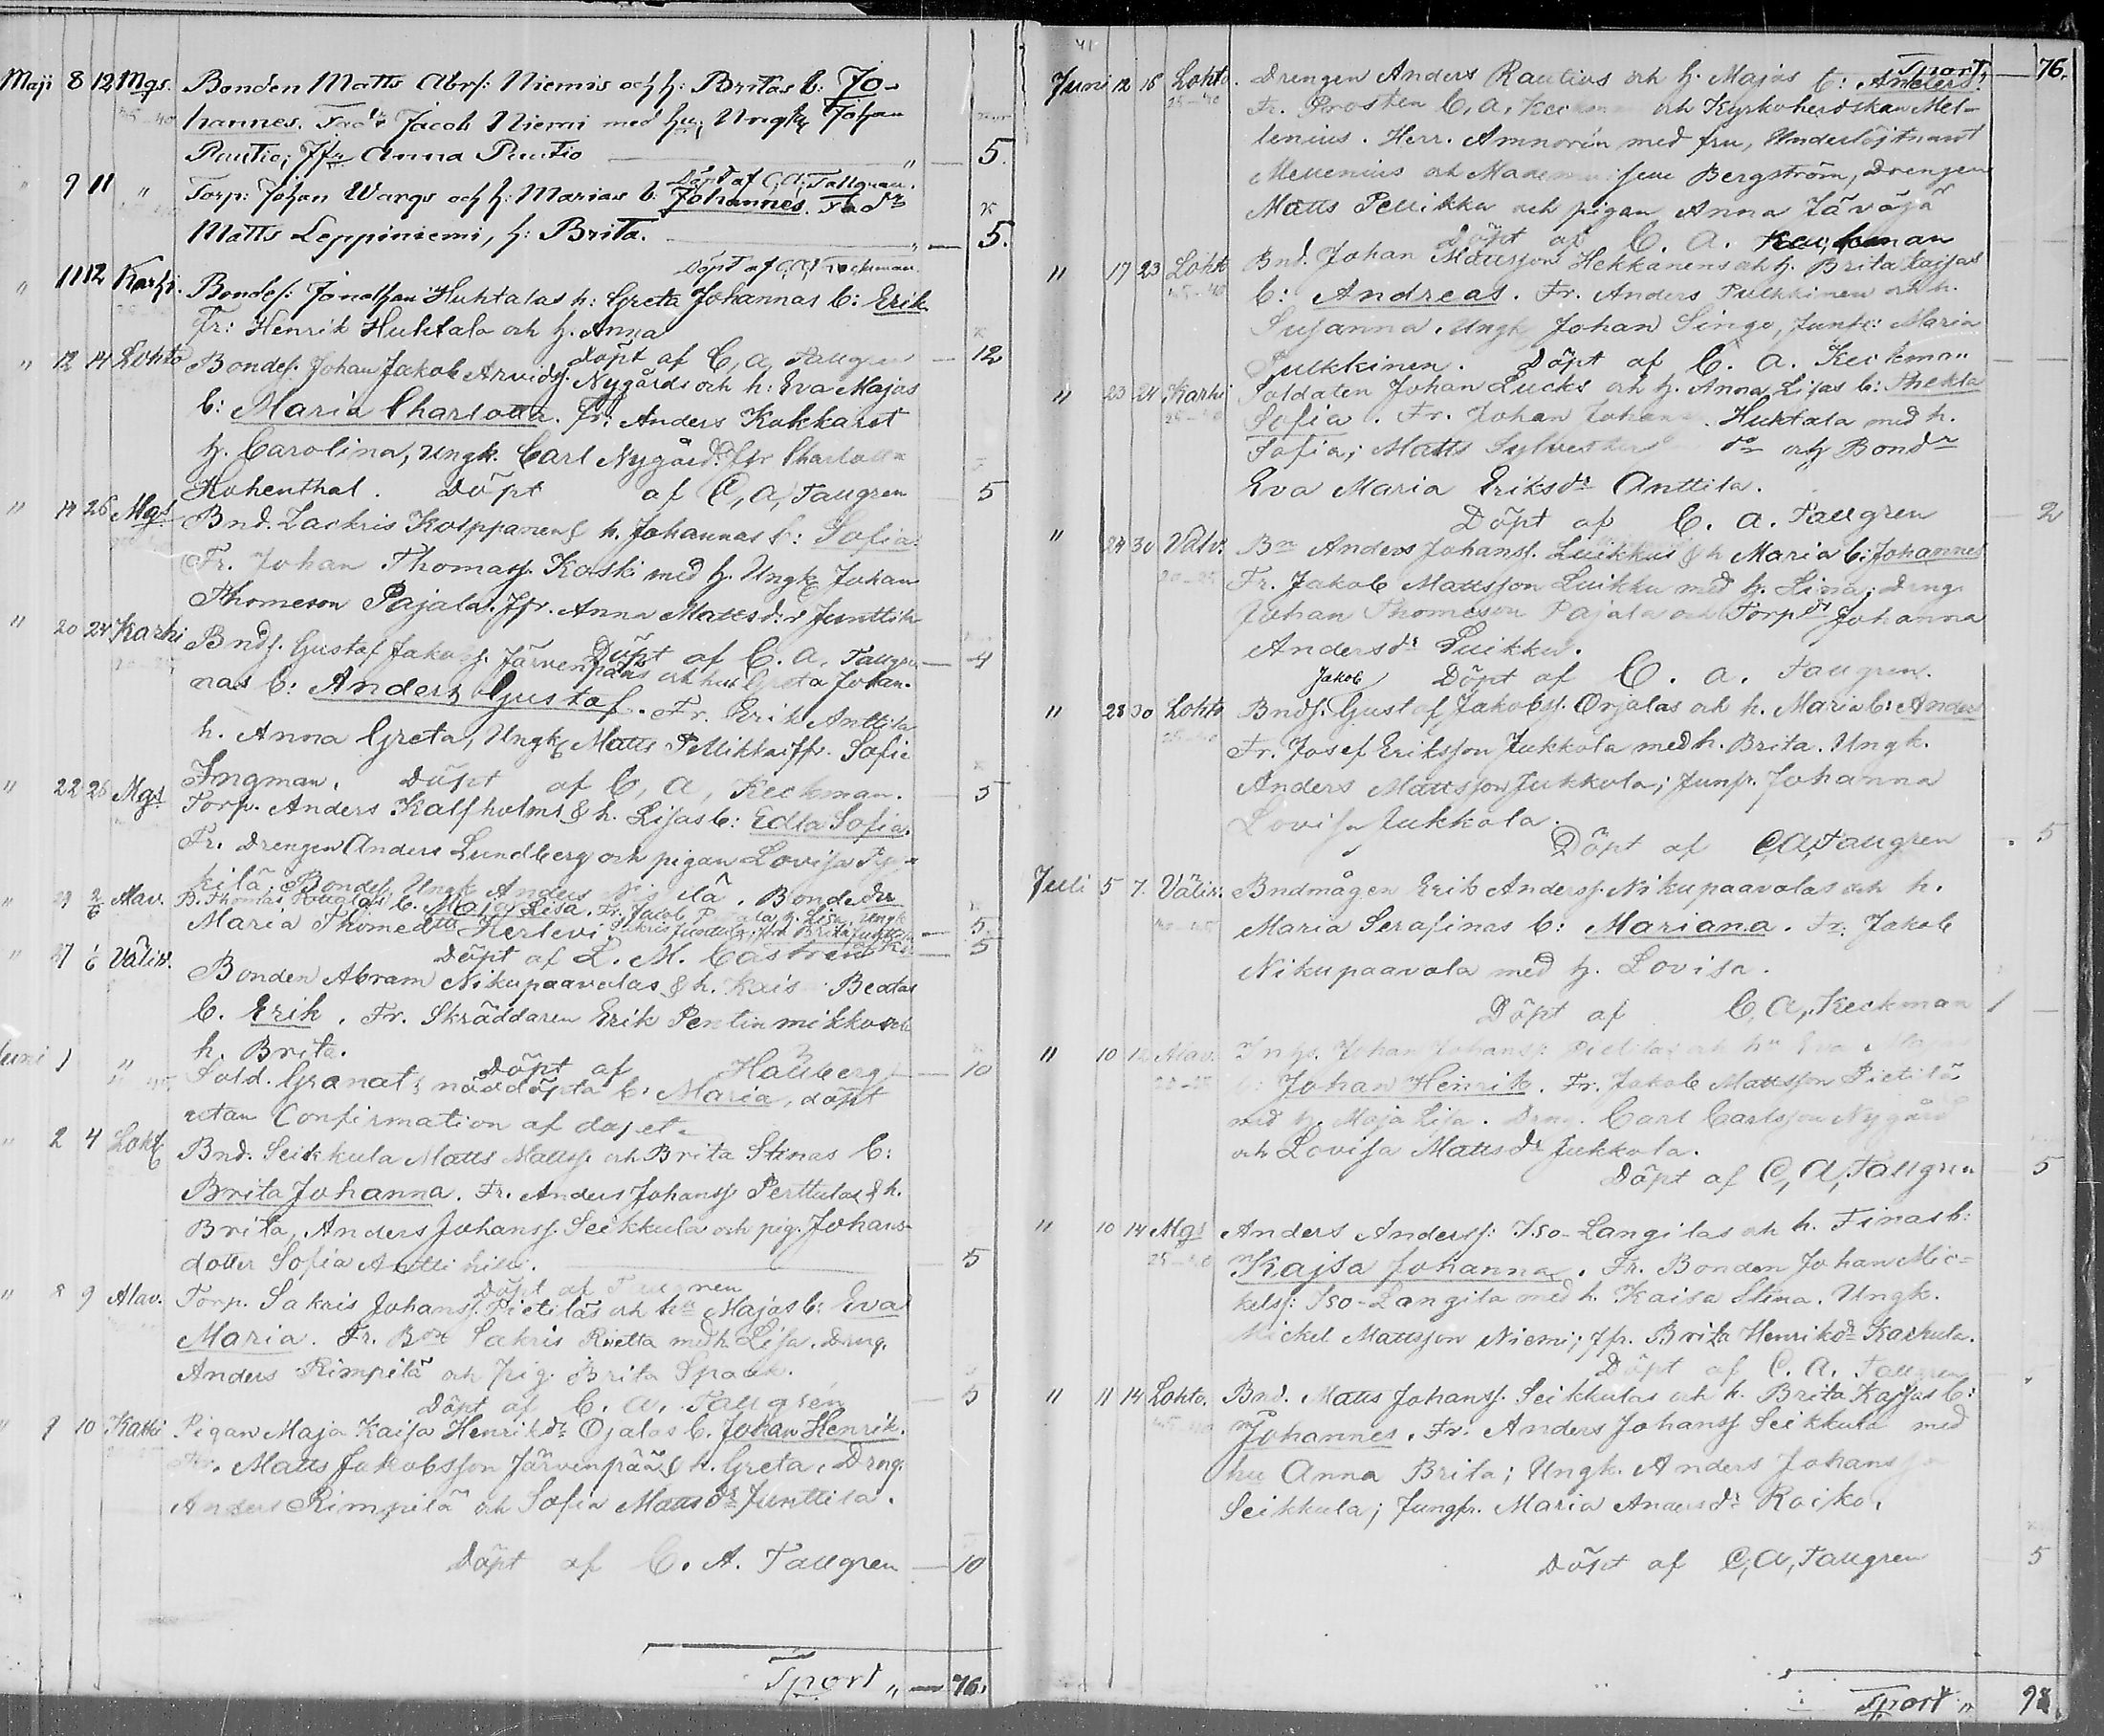 Maji 8 12 Mgs. Bonden Matts Abrs: Niemis och h: Britas b: Jo-
hannes. Fadr Jacob Niemi med hu; Ungk Johan
Rautio; Jfr Anna Rautio " — 5.
Döpt af C. A. Tallgren.
" 9 11 " Torp: Johan Wargs och h: Marias b. Johannes. Fadr
Matts Leppiniemi, h: Brita. " — 5.
Döpt af C. A. Keckman.
" 11 12 Karhi. Bondes: Jonathan Huhtalas h: Greta Johannas b: Erik
Fr: Henrik Huhtala och h. Anna
Döpt af C, A, Tallgren — 12
" 12 14 Lohto Bondes. Johan Jakob Arvids. Nygårds och h: Eva Majas
b: Maria Charlotta. Fr: Anders Kokkarit
h. Carolina, Ungk. Carl Nygård. Jfr Charlotta
Hohenthal. Döpt af C, A, Tallgren — 5
" 14 26 Mgs Bnd. Zackris Kolppanens h. Johannas b: Sofia.
Fr. Johan Thomass. Koski med h. Ungk Johan
Thomeson Pajala. Jfr. Anna Mattsd:r Junttila
Döpt af C. A. Tallgren — 4
" 20 24 Karhi Bnds. Gustaf Jakobs. Järvenpääs och hu Greta Johan-
nas b: Anders Gustaf. Fr. Erik Anttila
h. Anna Greta, Ungk Matts Pellikka; Jfr. Sofie
Ingman. Döpt af C, A, Keckman. — 5
" 22 26 Mgs Torp. Anders Kalfholms & h. Lisas b: Edla Sofia.
Fr. Drengen Anders Lundberg och pigan Lovisa
kilä. Bondes. Ungk Anders lä. Bondedtr
" 29 2/6 Alav. B. Thomas b. Maja Lisa. Fr. Jacob h. Lisa, Ungk
Maria Thomedttr Herlevi. — 5.
Döpt af L. M. Castrén — 5
" 27 6 Väliv. Bonden Abram Nikupaavolas & h. Kaisa Beatas
b. Erik. Fr. Skräddaren Erik Pentinmikko och
h. Brita.
Döpt af Hallberg — 10
Juni 1 " Sold. Granats nöddöpta b: Maria, döpt
utan Confirmation af dopet.
" 2 4 Loht Bnd. Seikkula Matts Mattss. och Brita Stinas b:
Brita Johanna. Fr. Anders Johanss. Perttulas & h.
Brita, Anders Johanss. Seikkula och pig. Johans-
dotter Sofia Anttihilli. — 5
Döpt af Tallgren
" 8 9 Alav. Torp. Sakris Johanss. Pietiläs och hu Majas b: Eva
Maria. Fr. Bdn Sakris Rietta med h Lisa. Dreng.
Anders Rimpilä och pig. Brita Spaak.
Döpt af C. A. Tallgren — 5
" 9 10 Karhi Pigan Maja Kaisa Henriksdr Ojalas b. Johan Henrik.
Fr. Matts Jakobsson Järvenpää & h. Greta, Dreng.
Anders Rimpilä och Sofia Mattsdr Junttila.
Döpt af C. A. Tallgren — 10
Tport " — 76.
41
Tport — 76.
Juni 12 18 Lohto. Drengen Anders Rautios och h. Majas b: Anders.
25-40 Fr. Prosten C. A. Keckman och Kyrkoherdskan Mel-
lenius. Herr. Amnorin med fru, Underlöjtnant
Mellenius och Bergström, Drengen
Matts Pellikka och pigan Anna Täväjä
Döpt af C. A. Keckman
" 17 23 Loht Bnd. Johan Mattssons Hekkanens och h. Brita Kaisas
b: Andreas. Fr. Anders Pulkkinen och h.
Susanna. Ungk Johan Singo, Junkr: Maria
Pulkkinen. Döpt af C. A. Keckman
" 23 24 Karhi Soldaten Johan Lucks och h. Anna Lisas b: Thekla
Sofia. Fr. Johan Johans. Huhtala med h.
Sofia; Matts Sylvester do och Bondr
Eva Maria Eriksdr Anttila.
Döpt af C. A. Tallgren — 2
" 24 30 Väliv. Bn Anders Johanss. Luikkus & h Maria b: Johannes
20-25 Fr. Jakob Mattsson Luikku med h. Lisa; dreng.
Johan Thomeson Pajala och Torpdr Johanna
Andersdr Luikku.
Jakob Döpt af C. A. Tallgren.
" 28 30 Lohto Bnds. Gustaf Jakobss. Orjalas och h. Marias b: Anders
Fr. Josef Eriksson Jukkola med h. Brita. Ungk.
Anders Mattsson Jukkola; Junfr. Johanna
Lovisa Jukkola.
Döpt af C, A, Tallgren . 5
Juli 5 7. Väliv. Bndmågen Erik Anderss. Nikupaavolas och h.
Maria Serafinas b: Mariana. Fr. Jakob
Nikupaavola med h. Lovisa.
Döpt af C, A, Keckman
" 10 Alav. Inhs. Johan Johanss. Pietilas och hu Eva Maja
Johan Henrik. Fr. Jakob Mattsson Pietilä
med h. Maja Lisa. Dreng. Carl Carlsson Nygård
och Lovisa Mattsdr Jukkola.
Döpt af C, A, Tallgren — 5
" 10 14 Mgs Anders Anderss: Iso-Langilas och h. Finas b:
Kajsa Johanna. Fr. Bonden Johan Mic=
kelss: Iso-Langila med h. Kaisa Stina. Ungk.
Mickel Mattsson Niemi; Jfr. Brita Henriksdr Karhula.
Döpt af C. A. Tallgren
" 11 14 Lohto. Bnd. Matts Johanss. Seikkulas och h. Brita Kajsas b:
Johannes. Fr. Anders Johanss Seikkula med
hu Anna Brita; Ungk. Anders Johansson
Seikkula; Jungfr. Maria Andersdr Roiko.
Döpt af C, A, Tallgren 5
Tport " 98